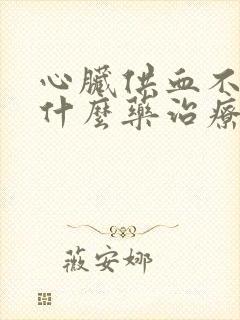 心臟供血不
什麼藥治療
薇安娜